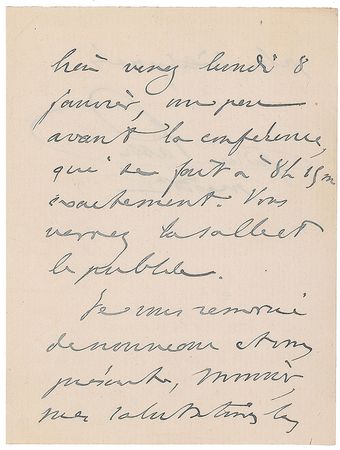 bien venez lundi 8
janvier, un peu
avant la conférence,
qui se fait à 8h 15m
exactement. Vous
verrez la salle et
le public.
Je vous remercie
de nouveau et vous
présente, Monsieur,
mes salutations les